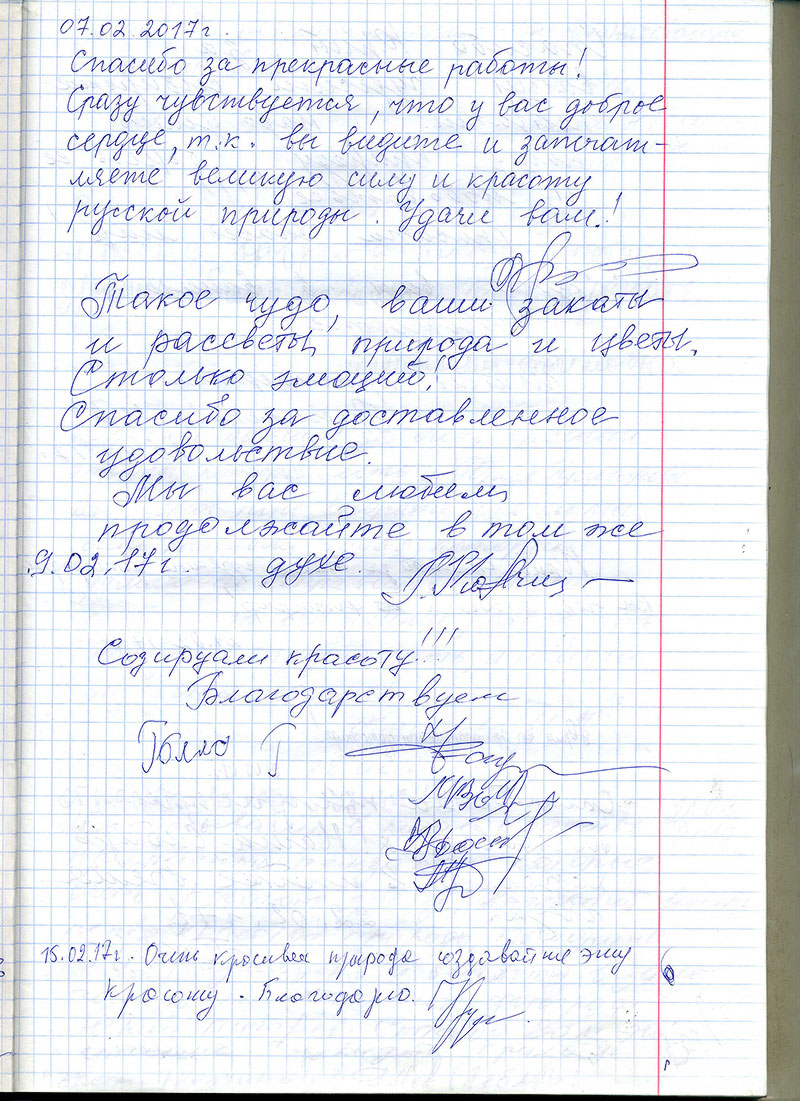 07.02.2017г.
Спасибо за прекрасные работы!
Сразу чувствуется, что у вас доброе
сердце, т.к. вы видите и запечат-
ляете великую силу и красоту
русской природы. Удачи вам!
Такое чудо, ваши закаты
и рассветы, природа и цветы.
Столько эмоций!
Спасибо за доставленное
удовольствие.
Мы вас любим,
продолжайте в том же
9.02.17г. духе.
Созируали красоту!!!
Благодарствуем
15.02.17г. Очень красивая природа создавайте эту
красоту. Благодарю.